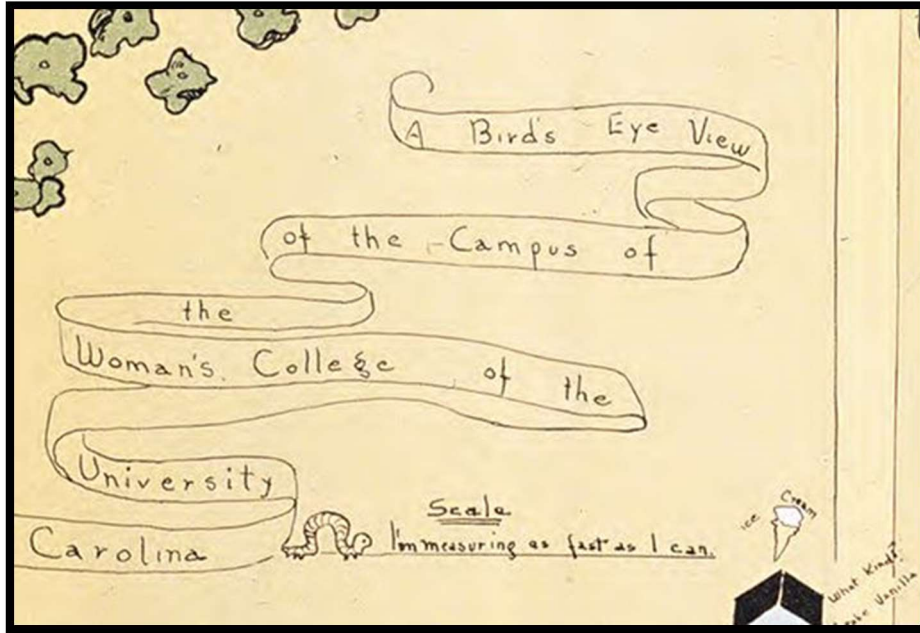 A Bird's Eye View
of the Campus of
the
Woman's College of the
University
Carolina
Scale
I'm measuring as fast as I can.
Ice Cream
What Kind?
Vanilla